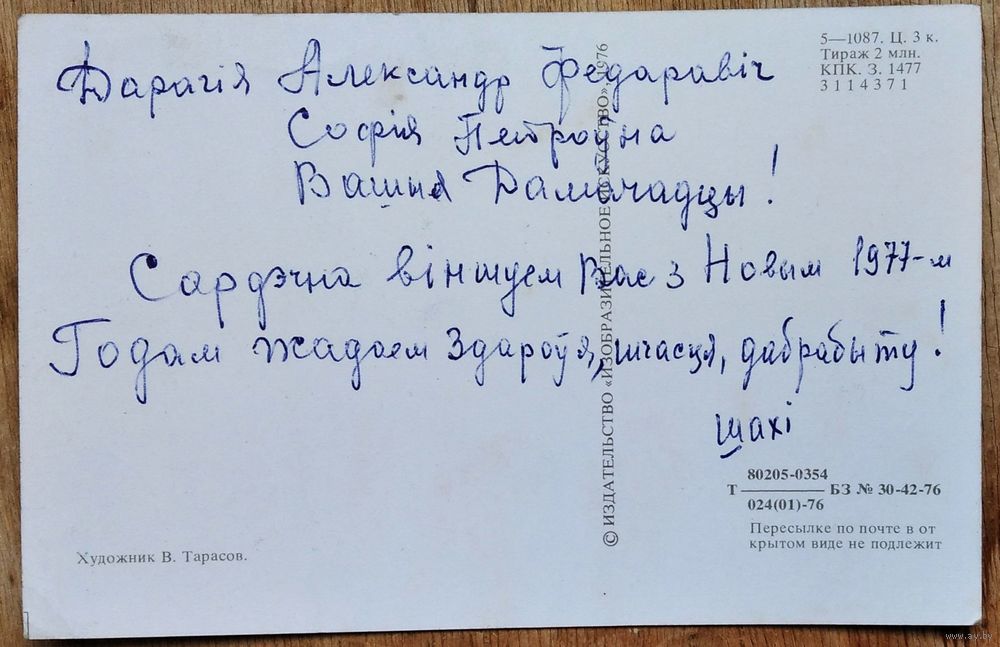 Дарагія Александр Федаравіч
Софія Петроўна
Вашыя Дамачадцы!
Сардэчна віншуем Вас з Новым 1977-м
Годам жадаем Здароўя, шчасця, дабрабыту!
Шахі
5—1087. Ц. 3 к.
Тираж 2 млн.
КПК. З. 1477
3114371
© ИЗДАТЕЛЬСТВО «ИЗОБРАЗИТЕЛЬНОЕ ИСКУССТВО». 1976
80205-0354
Т ———— БЗ № 30-42-76
024(01)-76
Пересылке по почте в от
крытом виде не подлежит
Художник В. Тарасов.
www.ay.by